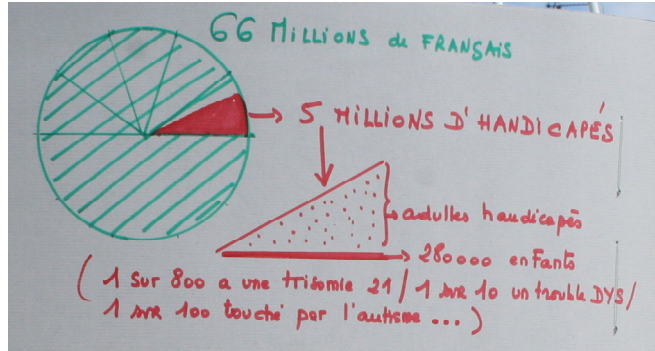 66 MILLIONS de FRANÇAIS
5 MILLIONS D'HANDICAPÉS
adultes handicapés
280000 enfants
(1 sur 800 a une trisomie 21 / 1 sur 10 un trouble DYS /
1 sur 100 touché par l'autisme ...)